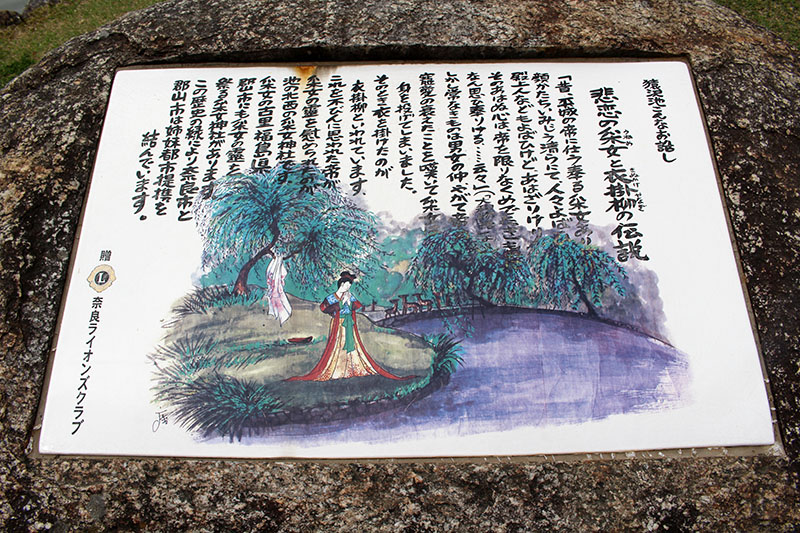 猿沢池こんなお話し
悲恋の采女と衣掛柳の伝説
うねめ きぬかけやなぎ
「昔、平城の帝に仕う奉る采女あり
顔かたち、いみじう清らにて人々よばひ
殿上人などもよばひけど、あはざりけり
そのあはぬ心は、帝を限りなくめでたきもの
なん思ひ奉りける……云々」
なきものは男女の仲、やがて
寵愛の衰えたことを嘆いて采女
身を投げてしまいました。
そのとき衣を掛けたのが
衣掛柳といわれています。
これを不びんに思われた帝が
采女の霊を慰められたのが
池の北西の采女神社です。
采女の古里・福島県
郡山市にも采女の霊を
祭る采女神社があります。
この歴史の縁により奈良市と
郡山市は姉妹都市提携を
結んでいます。
贈
L
奈良ライオンズクラブ